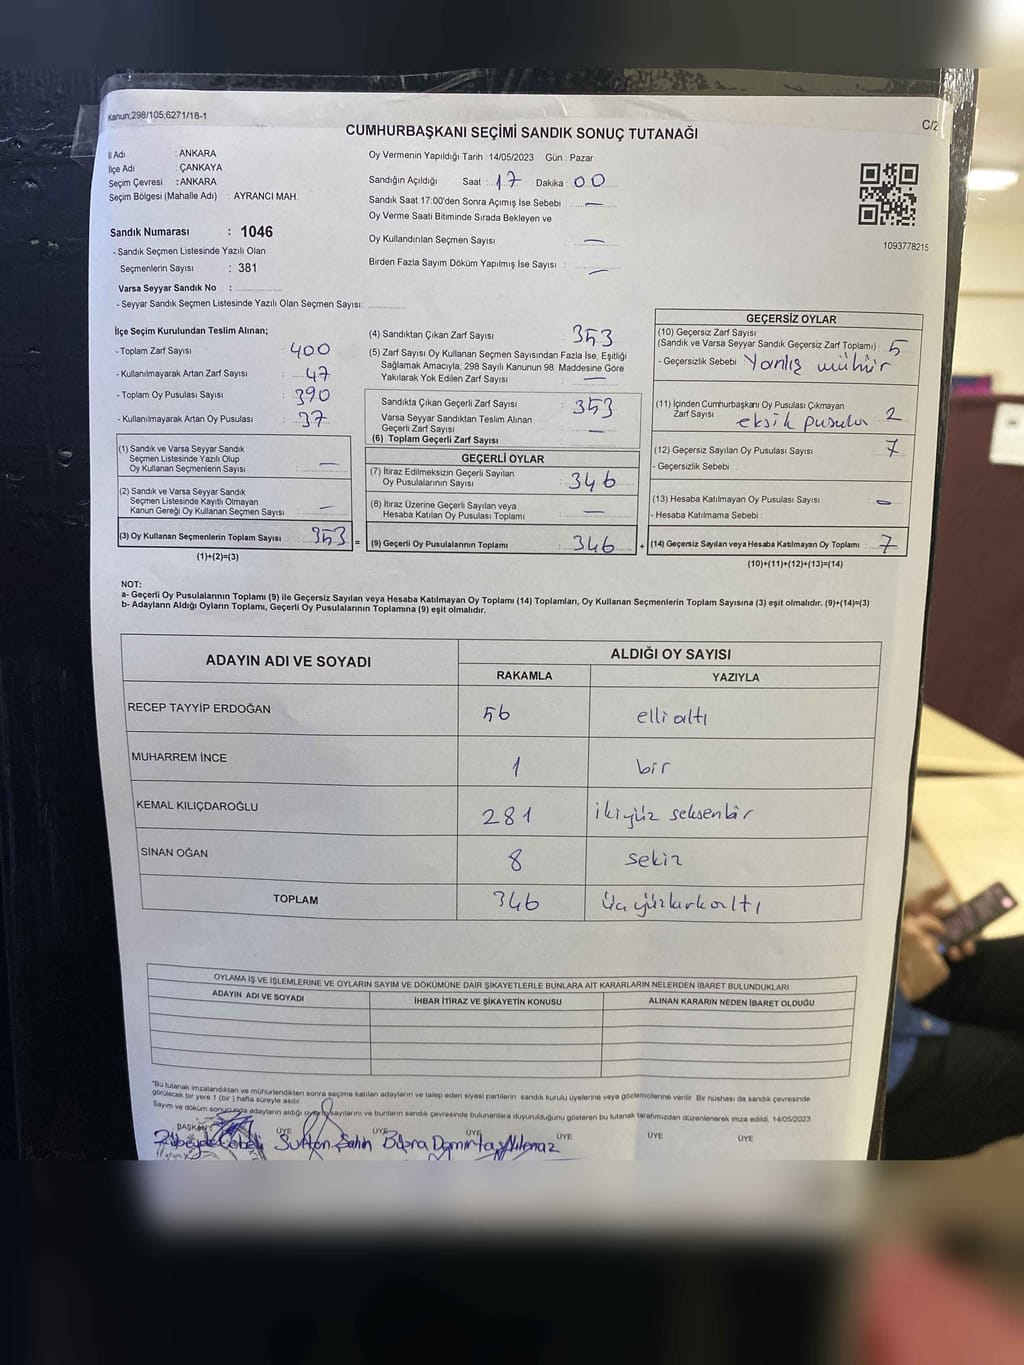 Kanun:298/105;6271/18-1
C/2
CUMHURBAŞKANI SEÇİMİ SANDIK SONUÇ TUTANAĞI
İl Adı : ANKARA
İlçe Adı : ÇANKAYA
Seçim Çevresi : ANKARA
Seçim Bölgesi (Mahalle Adı) : AYRANCI MAH.
Sandık Numarası : 1046
- Sandık Seçmen Listesinde Yazılı Olan
Seçmenlerin Sayısı : 381
Varsa Seyyar Sandık No :
- Seyyar Sandık Seçmen Listesinde Yazılı Olan Seçmen Sayısı:
Oy Vermenin Yapıldığı Tarih : 14/05/2023 Gün : Pazar
Sandığın Açıldığı Saat : 17 Dakika : 00
Sandık Saat 17:00'den Sonra Açımış İse Sebebi : —
Oy Verme Saati Bitiminde Sırada Bekleyen ve
Oy Kullandırılan Seçmen Sayısı : —
Birden Fazla Sayım Döküm Yapılmış İse Sayısı : —
1093778215
İlçe Seçim Kurulundan Teslim Alınan;
- Toplam Zarf Sayısı : 400
- Kullanılmayarak Artan Zarf Sayısı : 47
- Toplam Oy Pusulası Sayısı : 390
- Kullanılmayarak Artan Oy Pusulası : 37
(1) Sandık ve Varsa Seyyar Sandık
Seçmen Listesinde Yazılı Olup
Oy Kullanan Seçmenlerin Sayısı : —
(2) Sandık ve Varsa Seyyar Sandık
Seçmen Listesinde Kayıtlı Olmayan
Kanun Gereği Oy Kullanan Seçmen Sayısı : —
(3) Oy Kullanan Seçmenlerin Toplam Sayısı : 353 =
(1)+(2)=(3)
(4) Sandıktan Çıkan Zarf Sayısı : 353
(5) Zarf Sayısı Oy Kullanan Seçmen Sayısından Fazla İse, Eşitliği
Sağlamak Amacıyla; 298 Sayılı Kanunun 98. Maddesine Göre
Yakılarak Yok Edilen Zarf Sayısı : —
Sandıkta Çıkan Geçerli Zarf Sayısı : 353
Varsa Seyyar Sandıktan Teslim Alınan
Geçerli Zarf Sayısı : —
(6) Toplam Geçerli Zarf Sayısı
GEÇERLİ OYLAR
(7) İtiraz Edilmeksizin Geçerli Sayılan
Oy Pusulalarının Sayısı : 346
(8) İtiraz Üzerine Geçerli Sayılan veya
Hesaba Katılan Oy Pusulası Toplamı : —
(9) Geçerli Oy Pusulalarının Toplamı : 346 +
GEÇERSİZ OYLAR
(10) Geçersiz Zarf Sayısı
(Sandık ve Varsa Seyyar Sandık Geçersiz Zarf Toplamı) : 5
- Geçersizlik Sebebi : Yanlış mühür
(11) İçinden Cumhurbaşkanı Oy Pusulası Çıkmayan
Zarf Sayısı : 2
eksik pusula
(12) Geçersiz Sayılan Oy Pusulası Sayısı : 7
- Geçersizlik Sebebi :
(13) Hesaba Katılmayan Oy Pusulası Sayısı : —
- Hesaba Katılmama Sebebi :
(14) Geçersiz Sayılan veya Hesaba Katılmayan Oy Toplamı : 7
(10)+(11)+(12)+(13)=(14)
NOT:
a- Geçerli Oy Pusulalarının Toplamı (9) ile Geçersiz Sayılan veya Hesaba Katılmayan Oy Toplamı (14) Toplamları, Oy Kullanan Seçmenlerin Toplam Sayısına (3) eşit olmalıdır. (9)+(14)=(3)
b- Adayların Aldığı Oyların Toplamı, Geçerli Oy Pusulalarının Toplamına (9) eşit olmalıdır.
ADAYIN ADI VE SOYADI
ALDIĞI OY SAYISI
RAKAMLA YAZIYLA
RECEP TAYYİP ERDOĞAN 56 elli altı
MUHARREM İNCE 1 bir
KEMAL KILIÇDAROĞLU 281 ikiyüz seksenbir
SİNAN OĞAN 8 sekiz
TOPLAM 346 üçyüzkırkaltı
OYLAMA İŞ VE İŞLEMLERİNE VE OYLARIN SAYIM VE DÖKÜMÜNE DAİR ŞİKAYETLERLE BUNLARA AİT KARARLARIN NELERDEN İBARET BULUNDUKLARI
ADAYIN ADI VE SOYADI İHBAR İTİRAZ VE ŞİKAYETİN KONUSU ALINAN KARARIN NEDEN İBARET OLDUĞU
"Bu tutanak imzalandıktan ve mühürlendikten sonra seçime katılan adayların ve talep eden siyasi partilerin sandık kurulu üyelerine veya gözlemcilerine verilir. Bir nüshası da sandık çevresinde
görülecek bir yere 1 (bir) hafta süreyle asılır.
Sayım ve döküm sonucunda adayların aldığı oyların sayılarını ve bunların sandık çevresinde bulunanlara duyurulduğunu gösteren bu tutanak tarafımızdan düzenlenerek imza edildi. 14/05/2023
BAŞKAN ÜYE ÜYE ÜYE ÜYE ÜYE ÜYE
Sultan Şahin Büşra Demirtaş